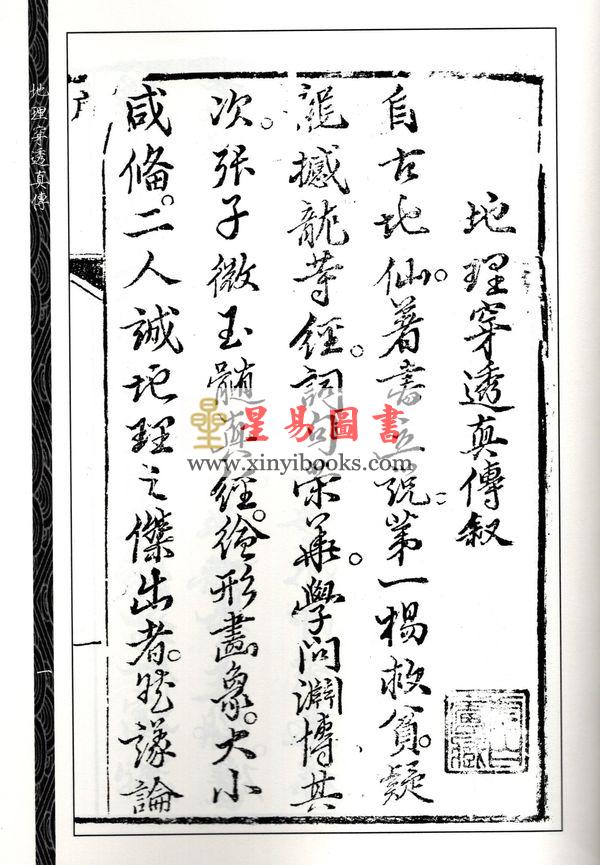 地理穿透真傳
地理穿透真傳叙
自古地仙。著書立說。第一楊救貧。疑
龍撼龍等經。詞句榮華。學問淵博。其
次。張子微玉髓真經。繪形畫象。大小
咸俻。二人誠地理之傑出者。然議論
星易圖書
www.xinyibooks.com
一